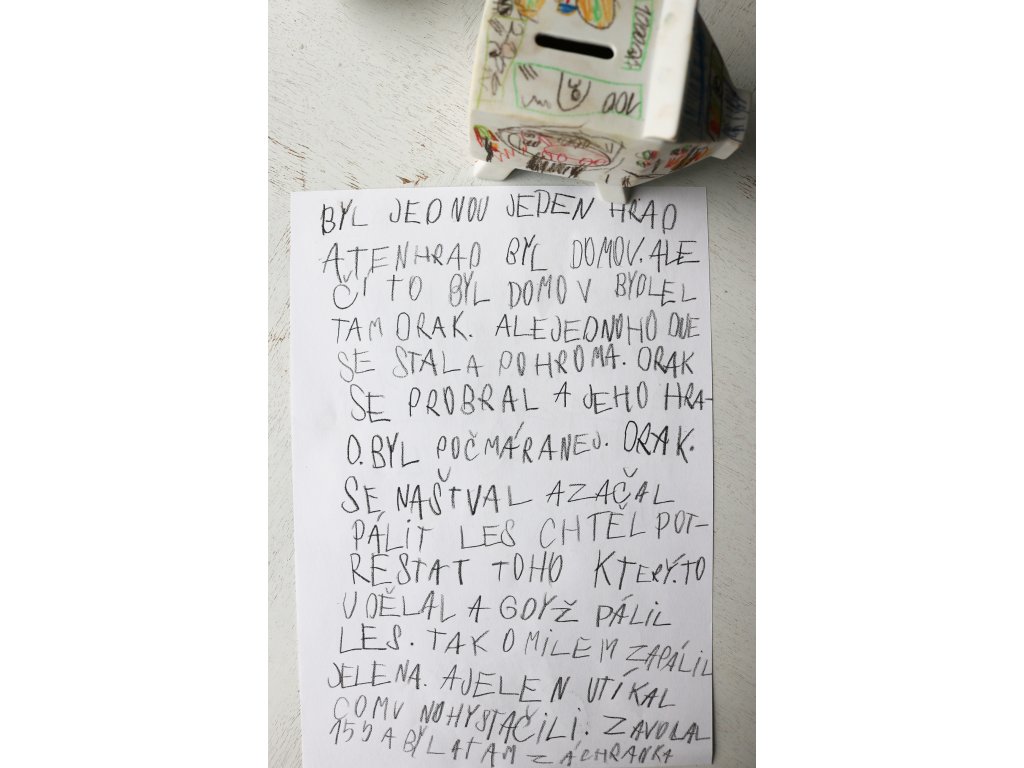 1000
100
BYL JEDNOU JEDEN HRAD
A TEN HRAD BYL DOMOV. ALE
ČI TO BYL DOMOV BYDLEL
TAM DRAK. ALE JEDNOHO DNE
SE STALA POHROMA. DRAK
SE PROBRAL A JEHO HRA-
D. BYL POČMÁRANEJ. DRAK.
SE NAŠTVAL A ZAČAL
PÁLIT LES CHTĚL POT-
RESTAT TOHO KTERÝ. TO
UDĚLAL A GDYŽ PÁLIL
LES. TAK OMILEM ZAPÁLIL
JELENA. A JELEN UTÍKAL
COMU NOHYSTAČILI. ZAVOLAL
155 A BYLATAM ZÁCHRANKA